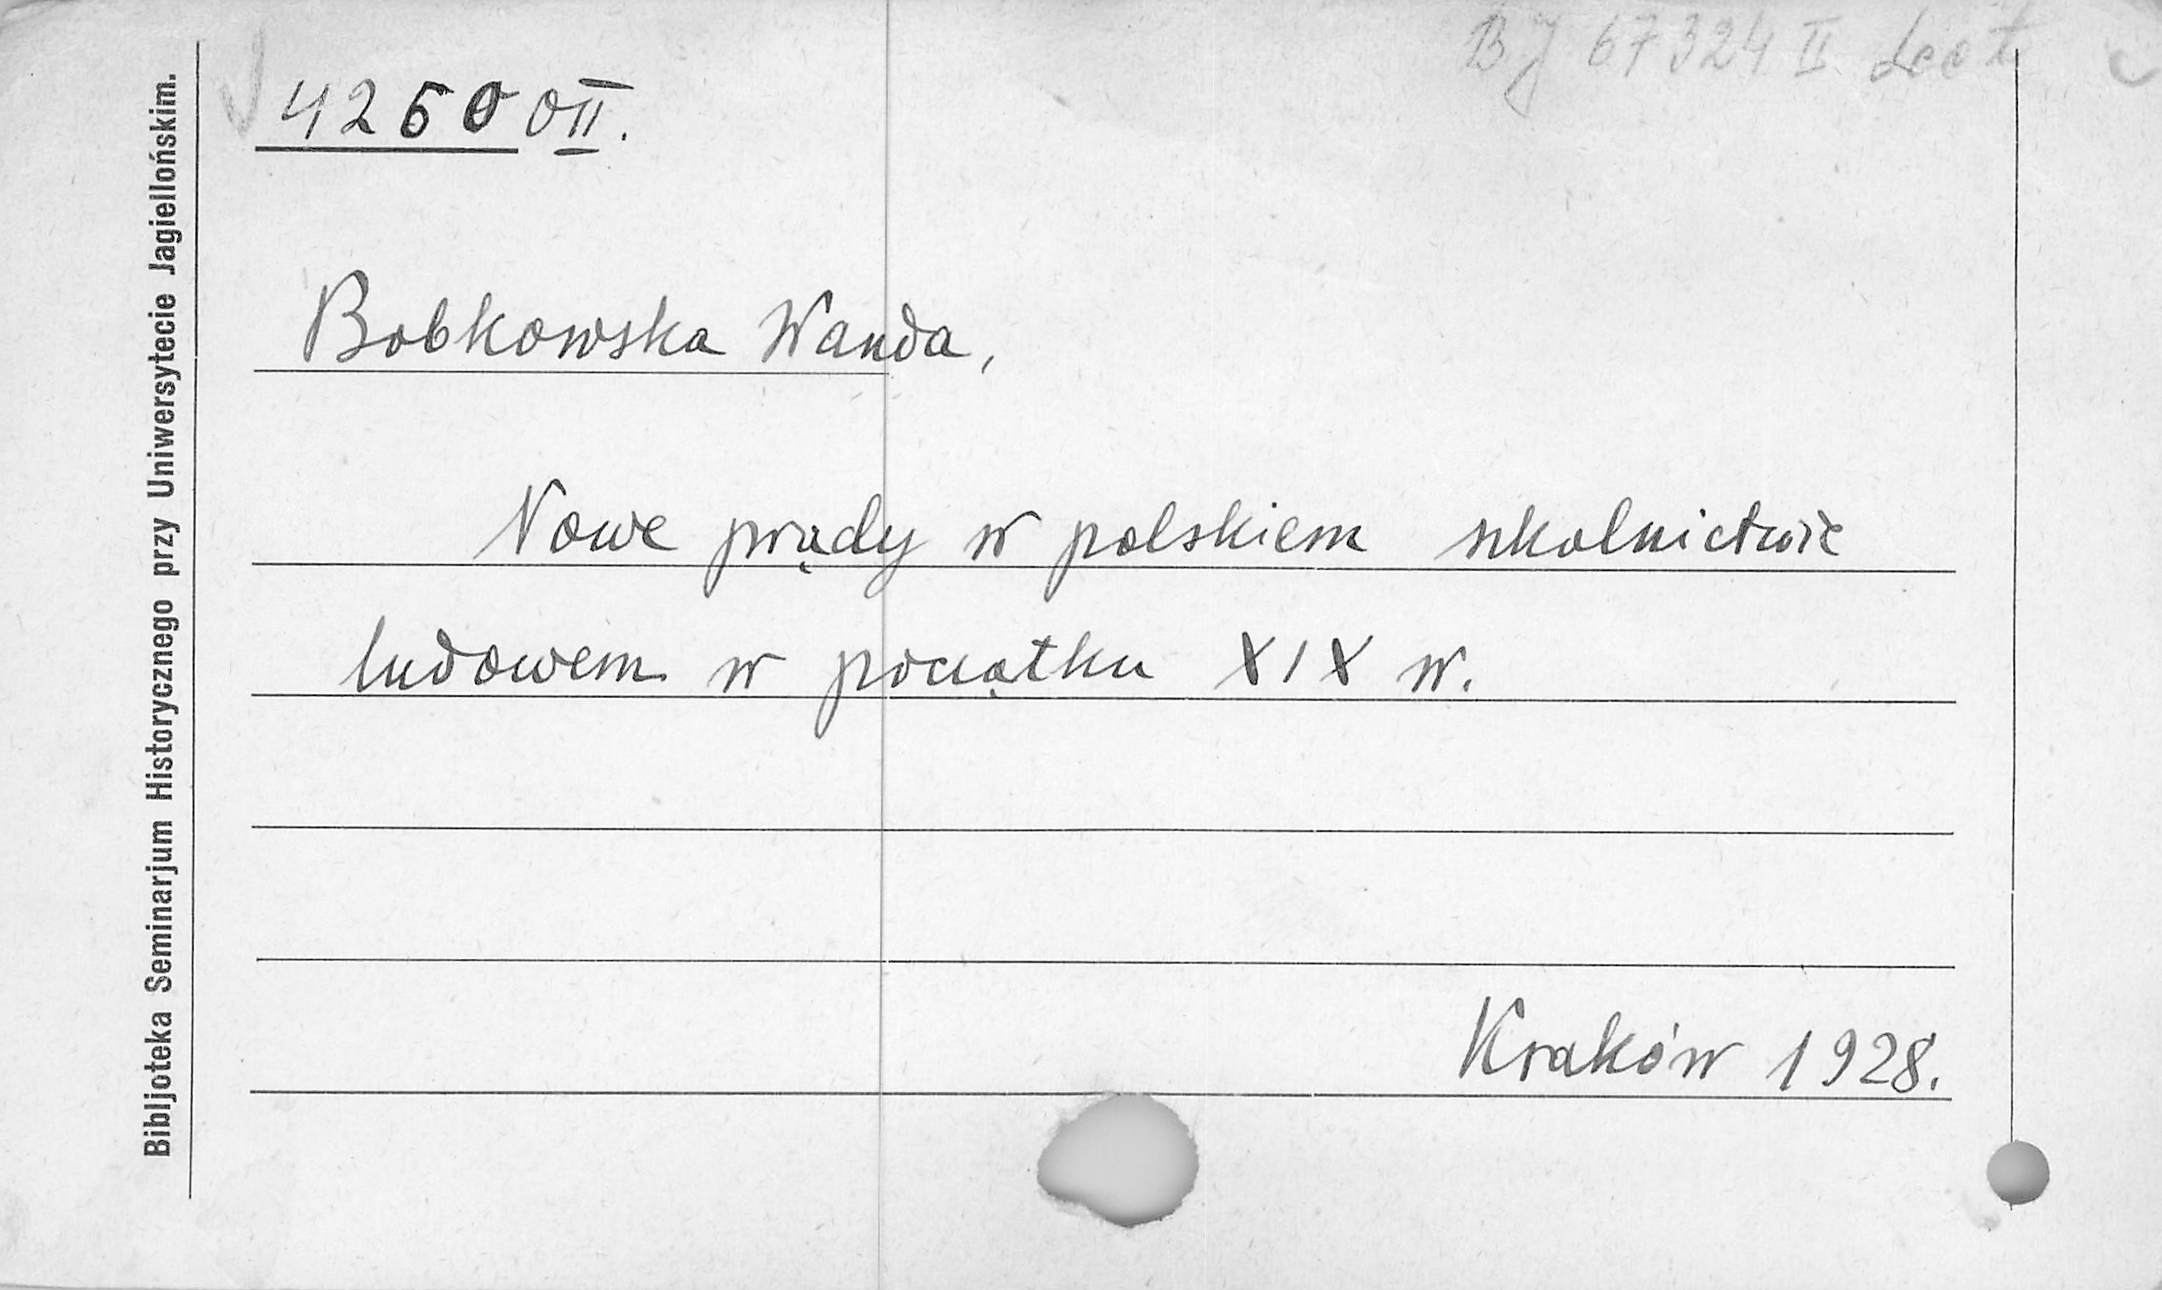 BJ 67324 II Lect
4260 OII.
Bobkowska Wanda,
Nowe prądy w polskiem szkolnictwie
ludowem w początku XIX w.
Kraków 1928.
Bibljoteka Seminarjum Historycznego przy Uniwersytecie Jagiellońskim.